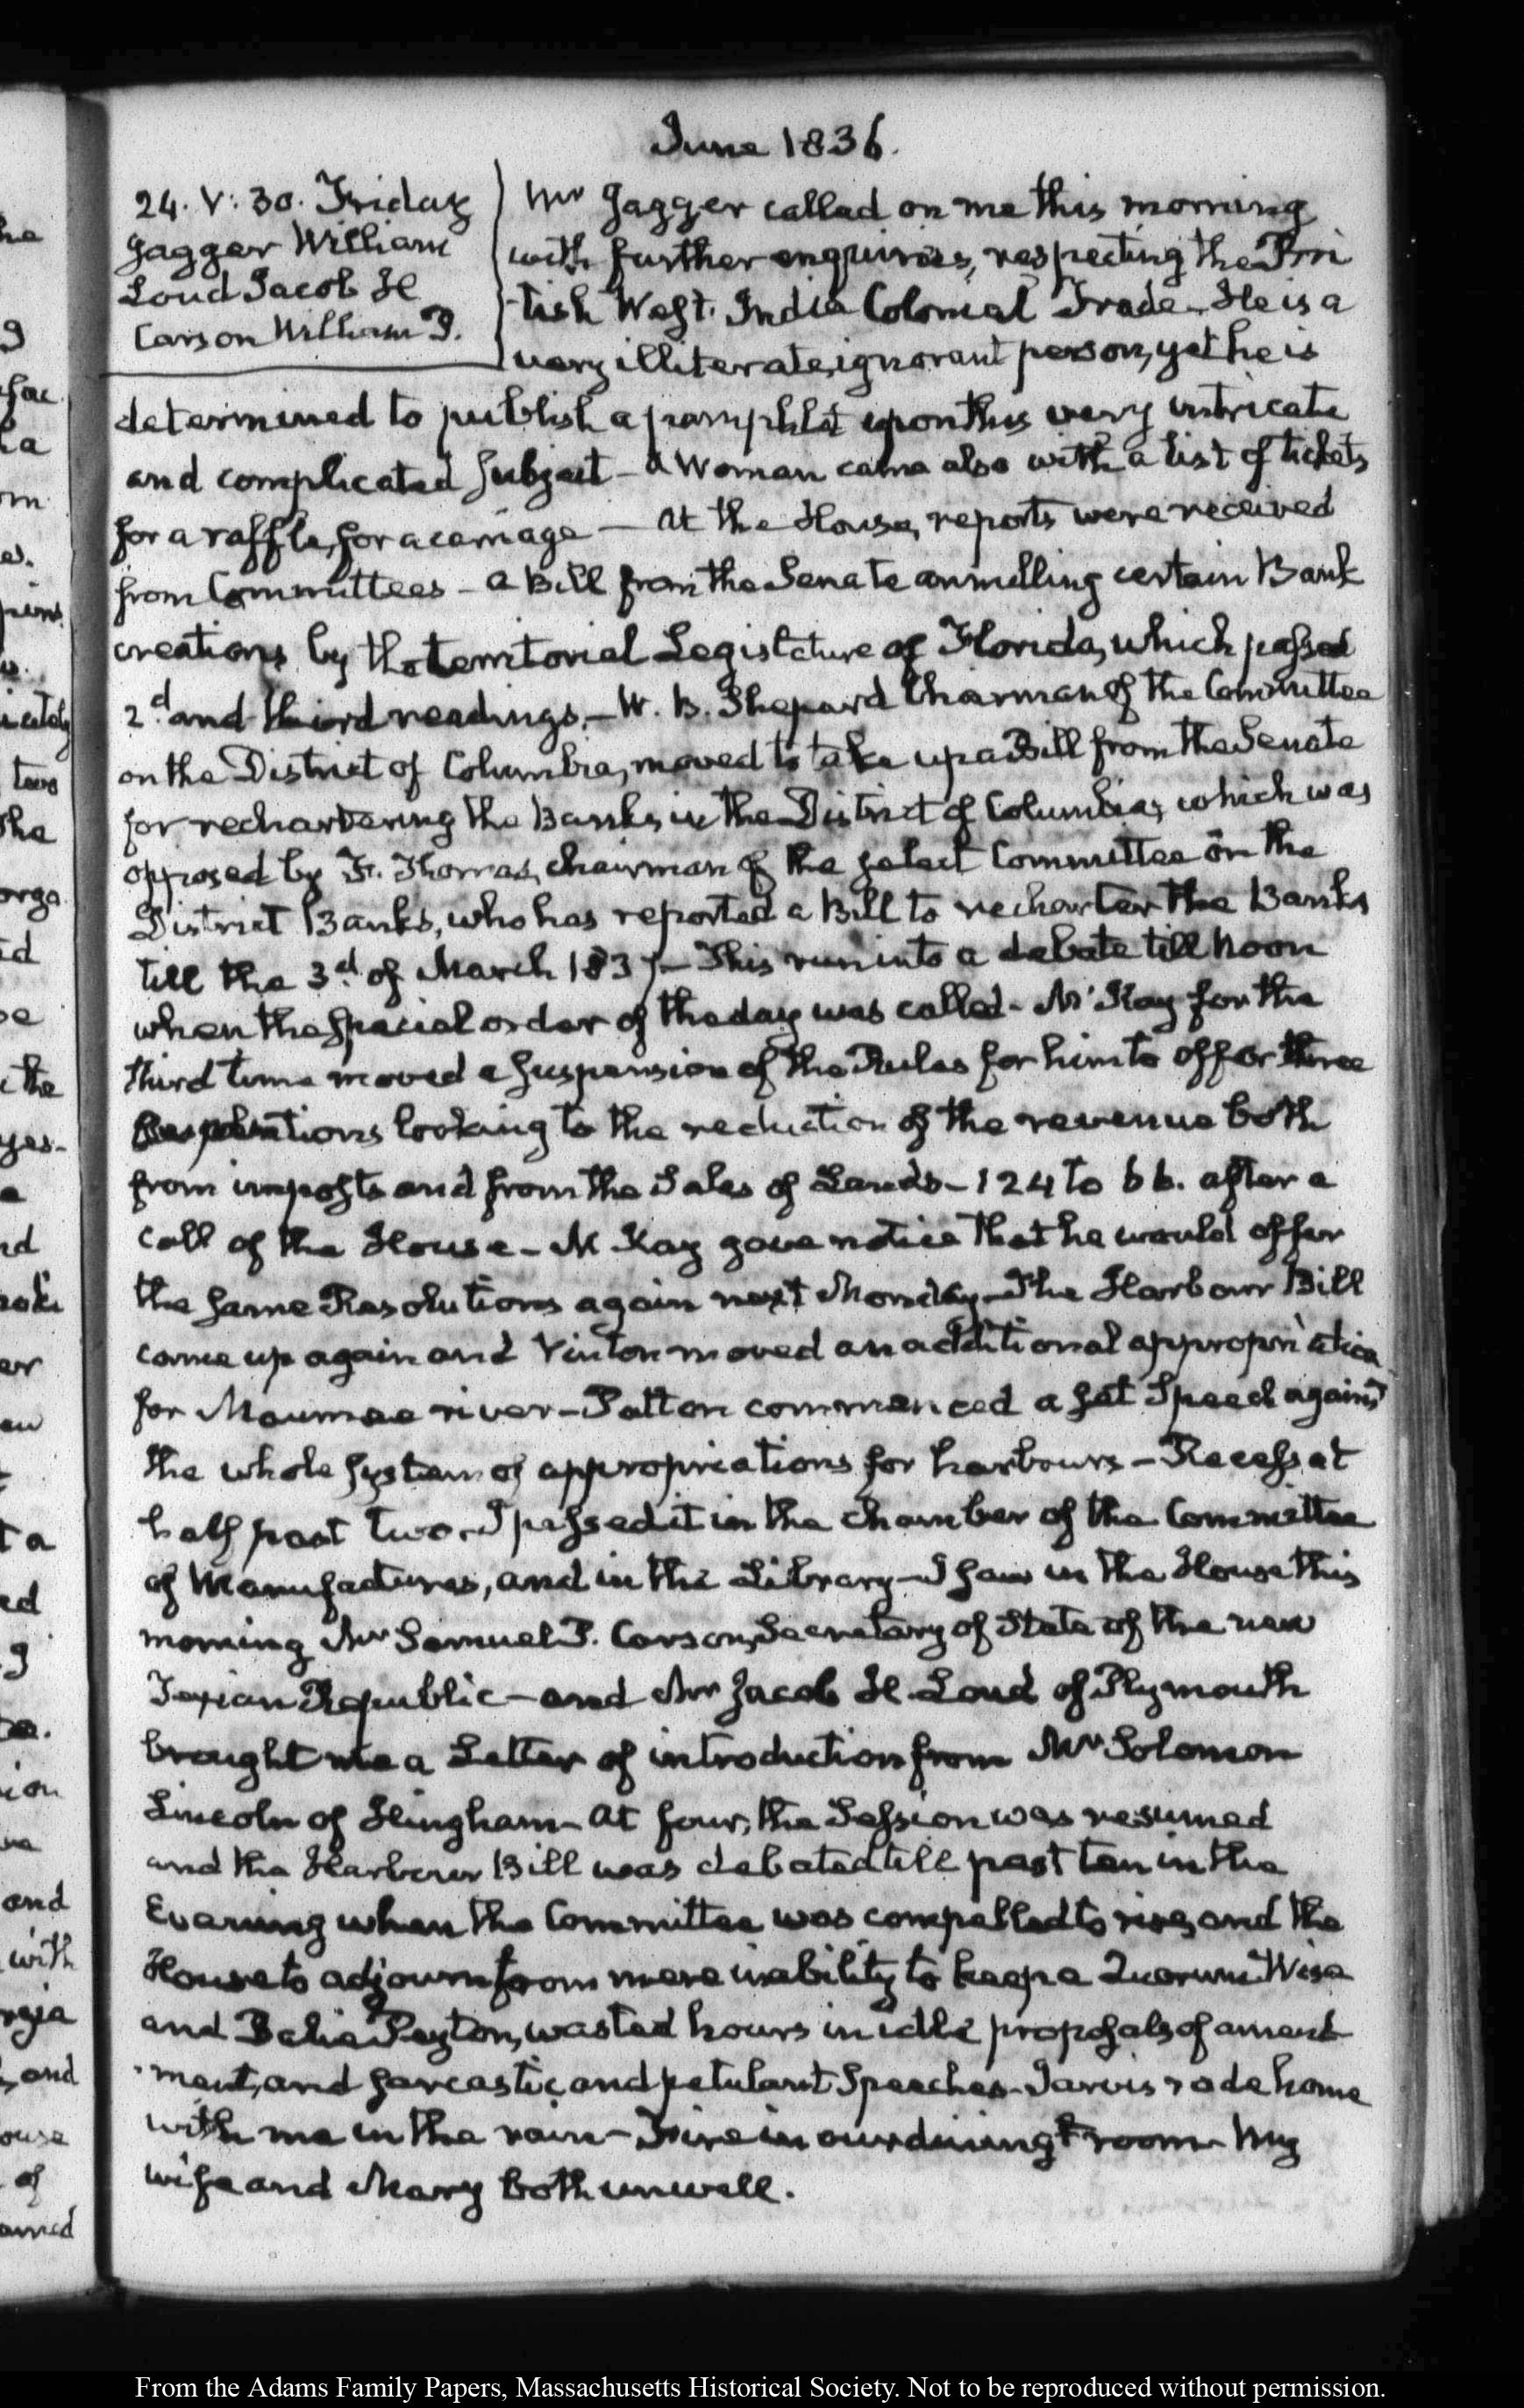 June 1836.
24. V: 30. Friday
Jagger William
Loud Jacob H
Carson William P.
Mr Jagger called on me this morning
with further enquiries, respecting the Bri
tish West. India Colonial Trade — He is a
very illiterate, ignorant person, yet he is
determined to publish a pamphlet upon this very intricate
and complicated subject — A Woman came also with a list of tickets
for a raffle, for a carriage — At the House, reports were received
from Committees — A Bill from the Senate annulling certain Bank
creations by the territorial Legislature of Florida, which passed
2d. and third readings. — W. B. Shepard Chairman of the Committee
on the District of Columbia, moved to take up a Bill from the Senate
for rechartering the Banks in the District of Columbia, which was
opposed by F. Thomas, chairman of the select Committee on the
District Banks, who has reported a Bill to recharter the Banks
till the 3d. of March 1837 — This run into a debate till Noon
when the special order of the day was called — McKay for the
third time moved a suspension of the Rules for him to offer three
Resolutions looking to the reduction of the revenue both
from imposts and from the Sales of Lands — 124 to 66. after a
call of the House — McKay gave notice that he would offer
the same Resolutions again next Monday — The Harbour Bill
came up again and Vinton moved an additional appropriation
for Maumee river — Patton commenced a set Speech against
the whole system of appropriations for harbours — Recess at
half past two. I passed it in the chamber of the Committee
of Manufactures, and in the Library — I saw in the House this
morning Mr Samuel P. Carson, Secretary of State of the new
Texian Republic — and Mr Jacob H. Loud of Plymouth
brought me a Letter of introduction from Mr Solomon
Lincoln of Hingham — At four, the Session was resumed
and the Harbour Bill was debated till past ten in the
Evening when the Committee was compelled to rise, and the
House to adjourn from mere inability to keep a Quorum. Wise
and Balie Peyton, wasted hours in idle proposals of amend
ment, and sarcastic and petulant Speeches — Jarvis rode home
with me in the rain — Fire in our dining room — My
wife and Mary both unwell.
From the Adams Family Papers, Massachusetts Historical Society. Not to be reproduced without permission.